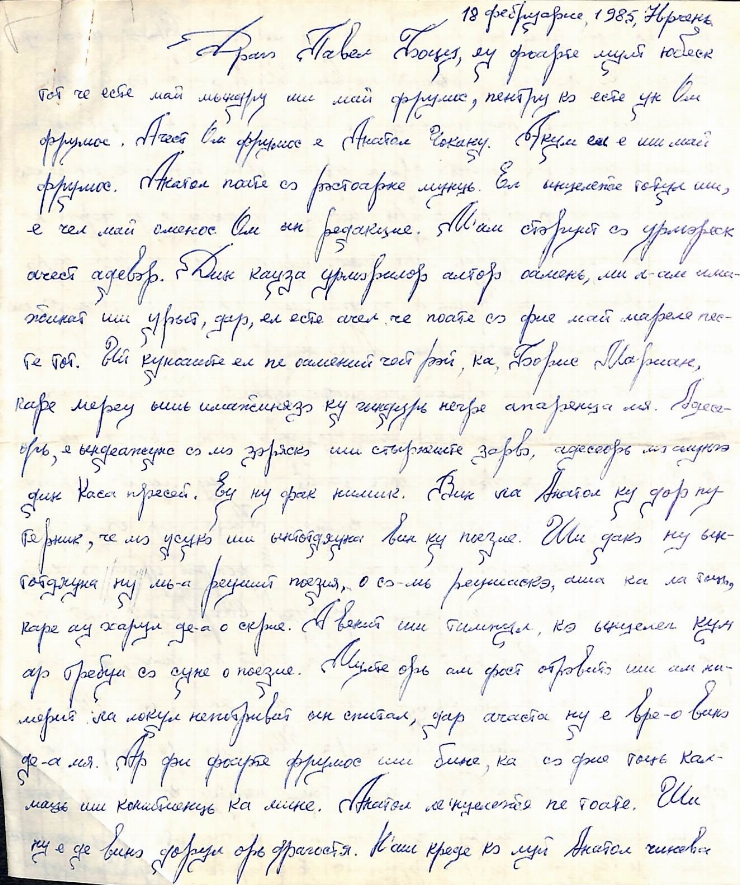 18 фебруарие, 1985, Ниспень
Драгэ Павел Боцу, еу фоарте мулт юбеск
тот че есте май мындру ши май фрумос, пентру кэ есте ун Ом
фрумос. Ачест Ом фрумос е Анатол Чокану. Акум ел е ши май
фрумос. Анатол поате сэ рэстоарне мунць. Ел ынцелеӂе тотул ши,
е чел май оменос Ом ын редакцие. М'ам стэруит сэ урмэреск
ачест адевэр. Дин кауза урмэрилор алтор оамень, ми л-ам има-
жинат ши урыт, дар, ел есте ачел че поате сэ фие май мареле пес-
те тот. Ый куноаште ел пе оамений чей рэй, ка, Борис Мариан,
каре мереу ышь имажинязэ ку гындурь негре апаренца мя. Адесе-
орь, е ындеажунс сэ мэ зэряскэ ши стырнеште зарвэ, адесеорь мэ алунгэ
дин Каса пресей. Еу ну фак нимик. Вин ла Анатол ку дор пу-
терник, че мэ усукэ ши ынтотдяуна вин ку поезие. Ши дакэ ну ын-
тотдяуна ну мь-а реушит поезия, о сэ-мь реушаскэ, аша ка ла тоць,
каре ау харул де-а о скрие. А венит ши тимпул, кэ ынцелег кум
ар требуи сэ суне о поезие. Мулте орь ам фост отрэвитэ ши ам ни-
мерит ла локул непотривит ын спитал, дар ачаста ну е вре-о винэ
де-а мя. Ар фи фоарте фрумос ши бине, ка сэ фие тоць кал-
маць ши конштиенць ка мине. Анатол ле'нцелеӂе пе тоате. Ши
ну е де винэ дорул орь драгостя. Н'аш креде кэ луй Анатол чинева